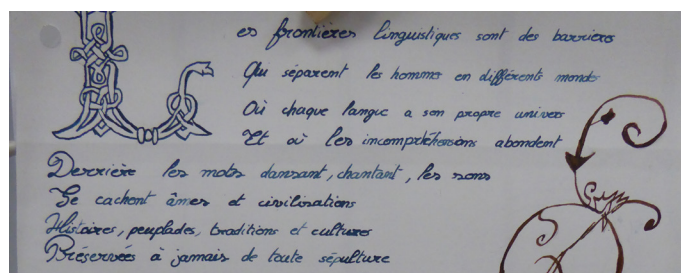 Les frontières linguistiques sont des barrieres
Qui séparent les hommes en différents mondes
Où chaque langue a son propre univers
Et où les incompréhensions abondent
Derrière les mots dansant, chantant, les sons
Se cachent âmes et civilisations
Histoires, peuplades, traditions et cultures
Préservées à jamais de toute sépulture